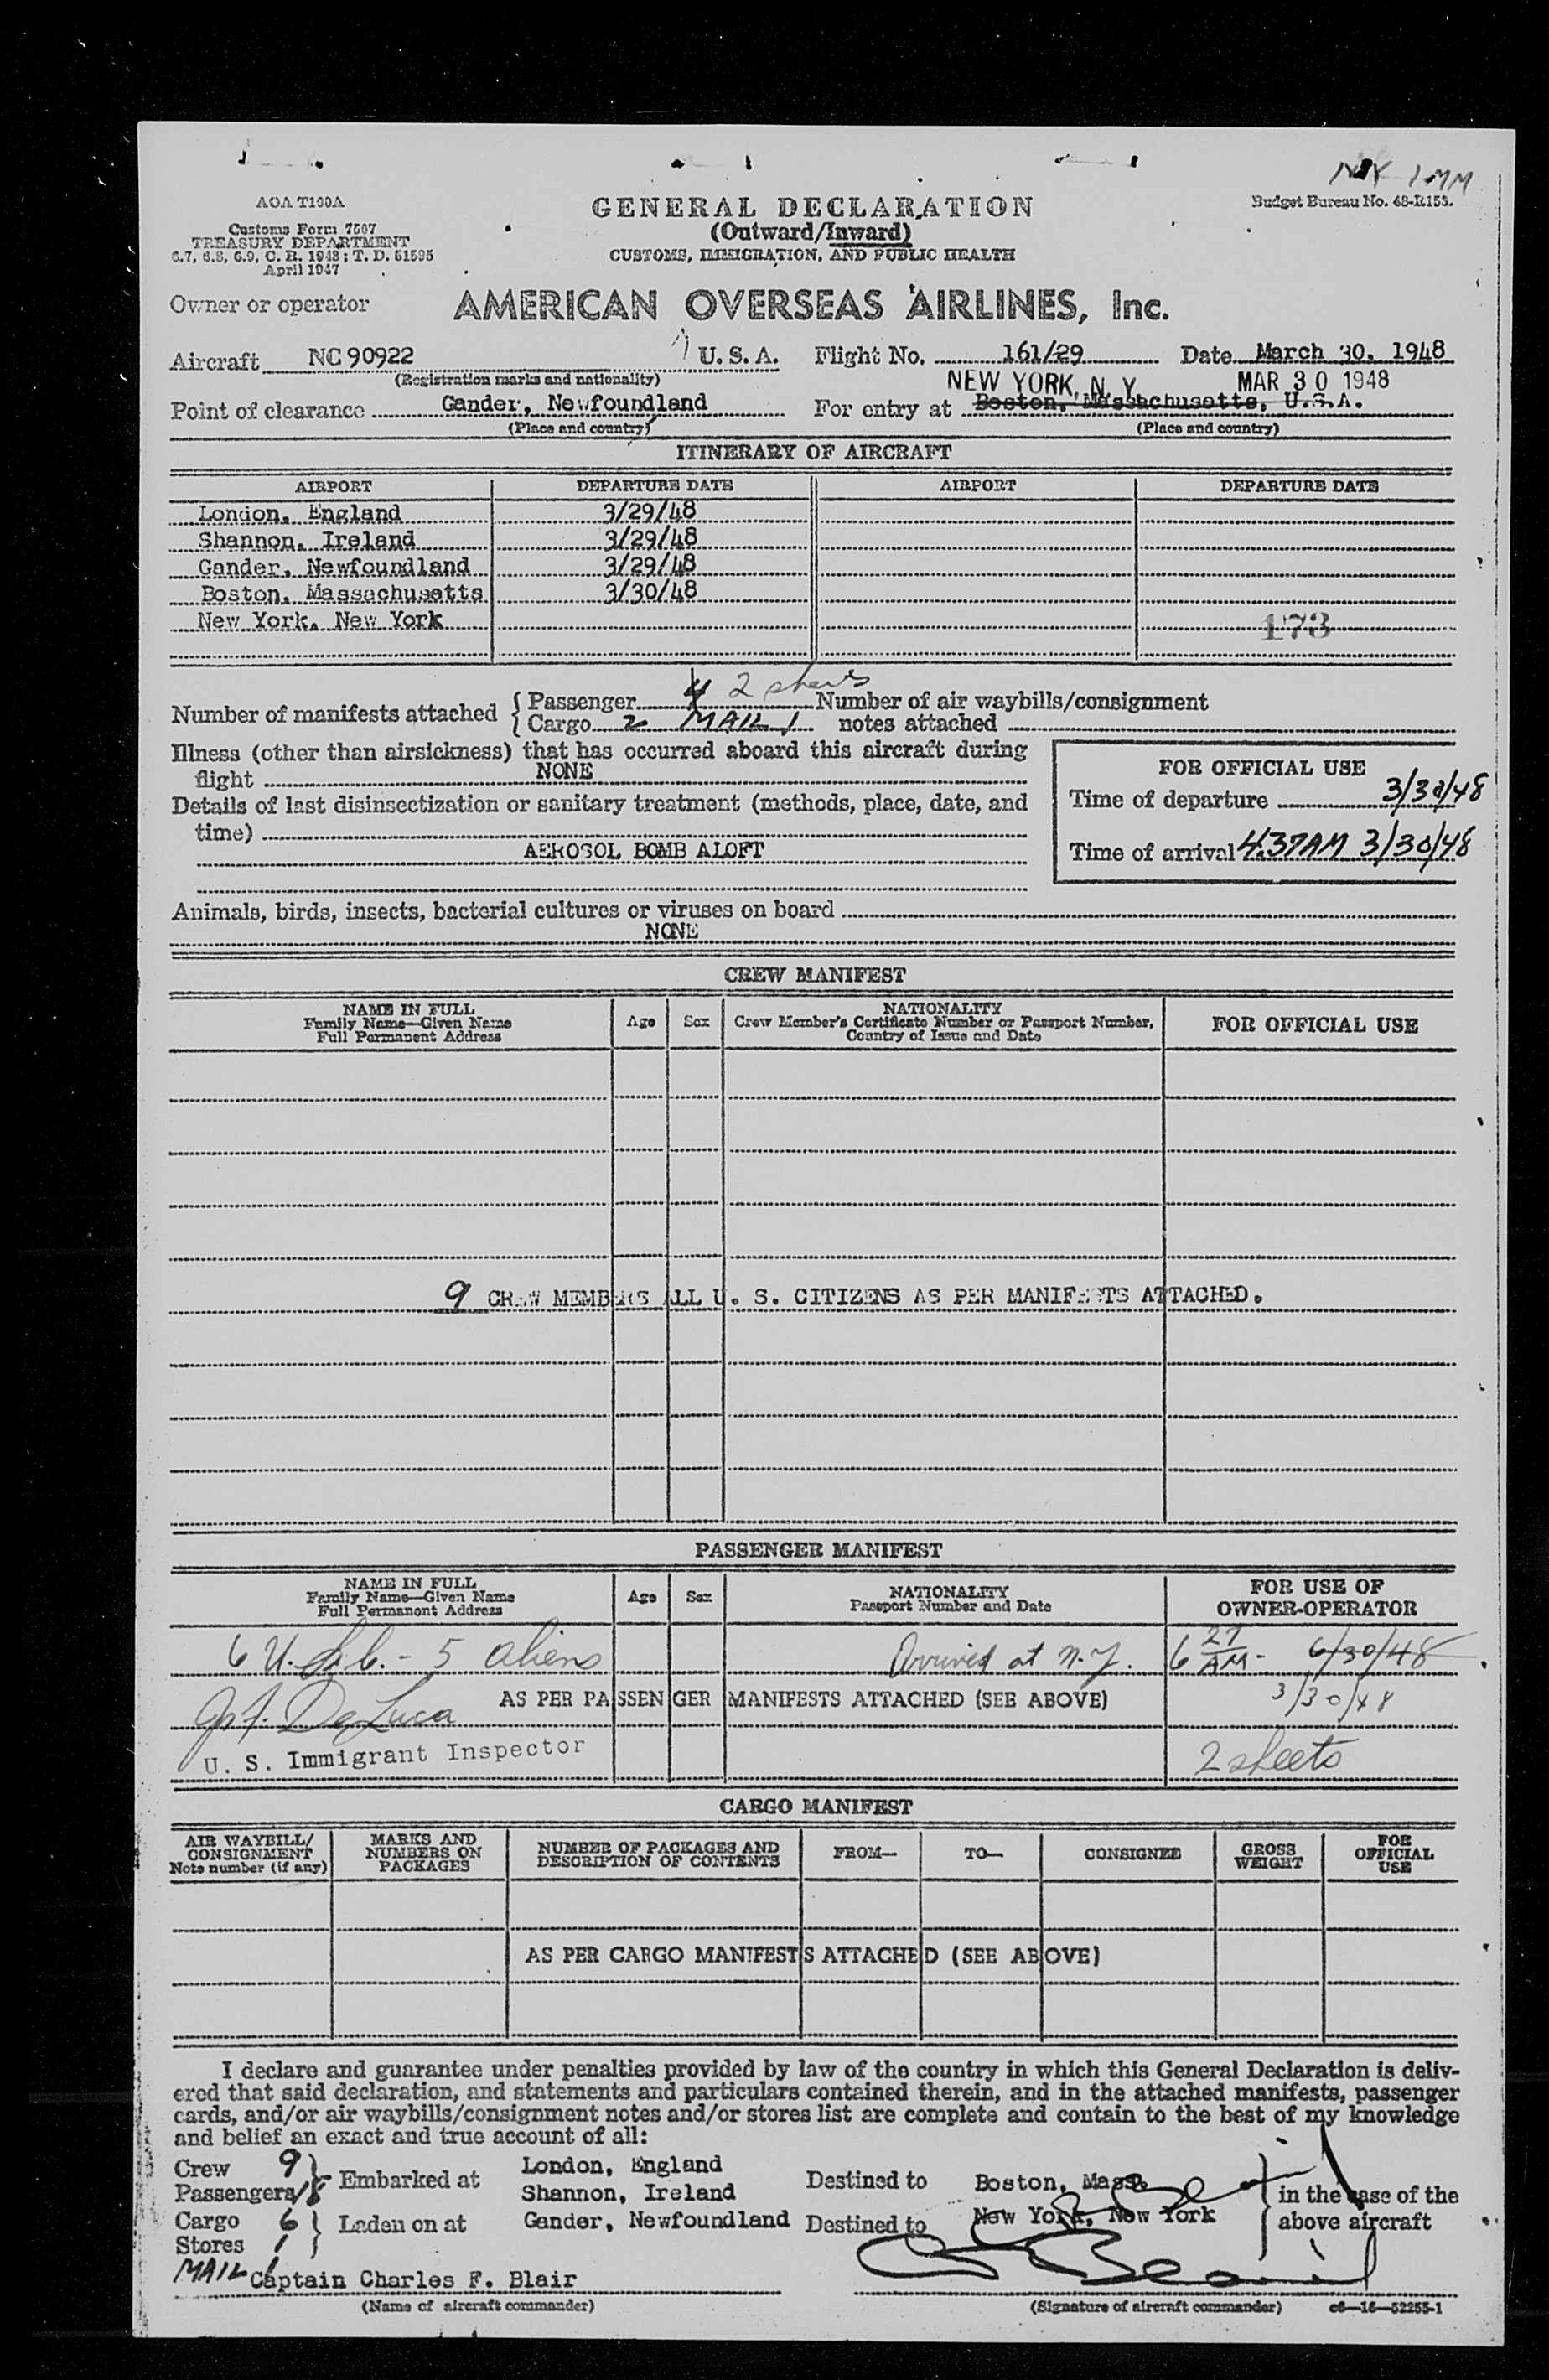 NY IMM
AOA T100A
GENERAL DECLARATION
Budget Bureau No. 48-R153.
Customs Form 7507
(Outward/Inward)
TREASURY DEPARTMENT
CUSTOMS, IMMIGRATION, AND PUBLIC HEALTH
6.7, 6.8, 6.9, C. R. 1943; T. D. 51595
April 1947
Owner or operator AMERICAN OVERSEAS AIRLINES, Inc.
Aircraft NC 90922 U. S. A. Flight No. 161/29 Date March 30, 1948
(Registration marks and nationality)
NEW YORK, N. Y. MAR 30 1948
Point of clearance Gander, Newfoundland For entry at Boston, Massachusetts, U.S.A.
(Place and country) (Place and country)
ITINERARY OF AIRCRAFT
AIRPORT DEPARTURE DATE AIRPORT DEPARTURE DATE
London, England 3/29/48
Shannon, Ireland 3/29/48
Gander, Newfoundland 3/29/48
Boston, Massachusetts 3/30/48
New York, New York
173
Number of manifests attached { Passenger 4 2 sheets Number of air waybills/consignment
Cargo 2 MAIL 1 notes attached
Illness (other than airsickness) that has occurred aboard this aircraft during
flight NONE
FOR OFFICIAL USE
Time of departure 3/30/48
Details of last disinsectization or sanitary treatment (methods, place, date, and
time)
AEROSOL BOMB ALOFT
Time of arrival 4:37AM 3/30/48
Animals, birds, insects, bacterial cultures or viruses on board
NONE
CREW MANIFEST
NAME IN FULL
Family Name—Given Name
Full Permanent Address
Age Sex
NATIONALITY
Crew Member's Certificate Number or Passport Number,
Country of Issue and Date
FOR OFFICIAL USE
9 CREW MEMBERS ALL U. S. CITIZENS AS PER MANIFESTS ATTACHED.
PASSENGER MANIFEST
NAME IN FULL
Family Name—Given Name
Full Permanent Address
Age Sex
NATIONALITY
Passport Number and Date
FOR USE OF
OWNER-OPERATOR
6 U.S.C. - 5 aliens Arrived at N.Y. 6 27 AM - 6/30/48
AS PER PASSENGER MANIFESTS ATTACHED (SEE ABOVE) 3/30/48
De Luca
U. S. Immigrant Inspector 2 sheets
CARGO MANIFEST
AIR WAYBILL/
CONSIGNMENT
Note number (if any)
MARKS AND
NUMBERS ON
PACKAGES
NUMBER OF PACKAGES AND
DESCRIPTION OF CONTENTS
FROM— TO— CONSIGNEE
GROSS
WEIGHT
FOR
OFFICIAL
USE
AS PER CARGO MANIFESTS ATTACHED (SEE ABOVE)
I declare and guarantee under penalties provided by law of the country in which this General Declaration is deliv-
ered that said declaration, and statements and particulars contained therein, and in the attached manifests, passenger
cards, and/or air waybills/consignment notes and/or stores list are complete and contain to the best of my knowledge
and belief an exact and true account of all:
Crew 9 } Embarked at London, England Destined to Boston, Mass. } in the case of the
Passengers Shannon, Ireland
Cargo 6 } Laden on at Gander, Newfoundland Destined to New York, New York above aircraft
Stores 1
MAIL 1
Captain Charles F. Blair
(Name of aircraft commander) (Signature of aircraft commander) c6—16—52255-1